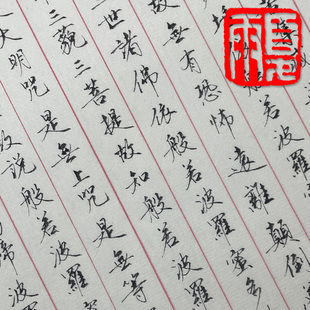 若波羅
故無有恐怖遠離顛倒
世諸佛依般若波羅蜜多
三藐三菩提故知般若波羅
大明咒是無上咒是無等
故說般若波羅
諦波